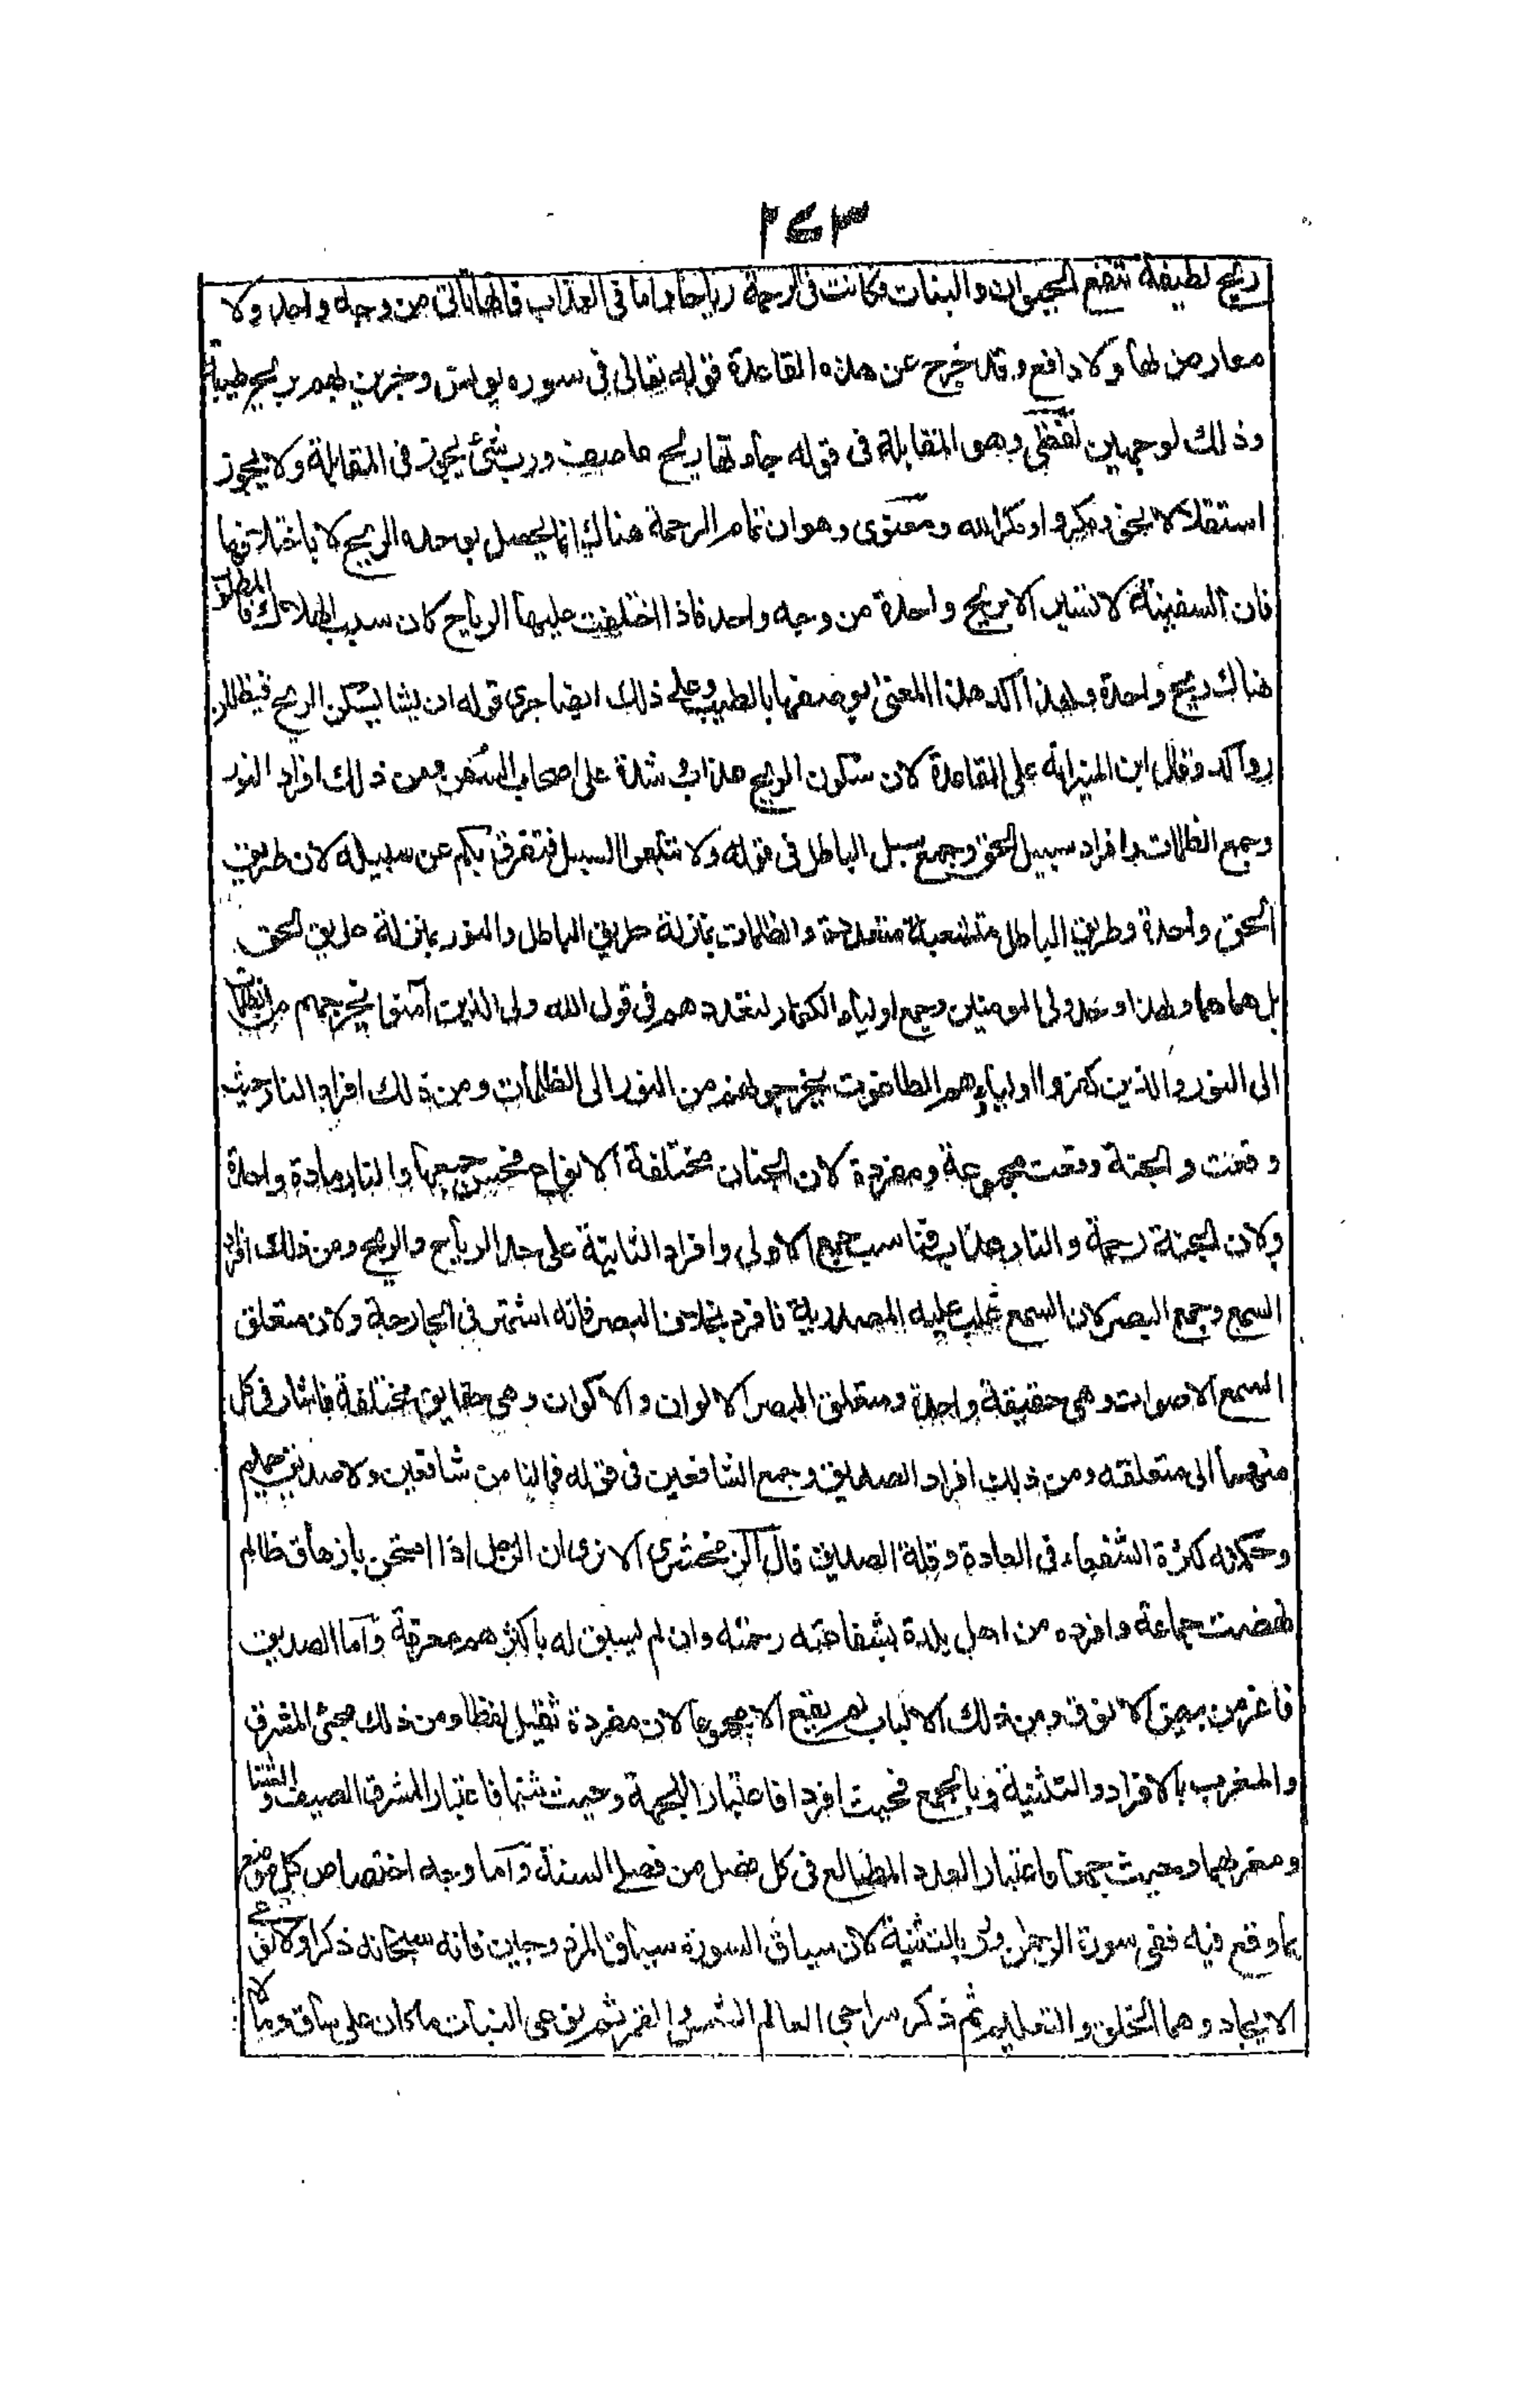 ٢٤٣
ريح لطيفة تنفع الحيوان والنبات وكانت في الرحمة رياحا واما في العذاب فانها تاتى من وجه واحد ولا
معارض لها ولا دافع وقد خرج عن هذه القاعدة قوله تعالى فى سورة يونس وجرين بهم بريح طيبة
وذلك لوجهين لفظى وهو المقابلة فى قوله جاءتها ريح عاصف ورب شئ يجوز فى المقابلة ولا يجوز
استقلالا نحو ومكروا ومكر الله ومعنوى وهو ان تمام الرحمة هناك انما يحصل بوحدة الريح لا باختلافها
فان السفينة لا تسير الا بريح واحدة من وجه واحد فاذا اختلفت عليها الرياح كان سبب الهلاك فالمطلوب
هناك ريح واحدة ولهذا اكد هذا المعنى بوصفها بالطيب وعلى ذلك ايضا جرى قوله ان يشا يسكن الريح فيظللن
رواكد وقال ابن المنير انه على القاعدة لان سكون الريح عذاب وشدة على اصحاب السفن ومن ذلك افراد النور
وجمع الظلمات وافراد سبيل الحق وجمع سبل الباطل فى قوله ولا تتبعوا السبل فتفرق بكم عن سبيله لان طريق
الحق واحدة وطريق الباطل متشعبة متعددة والظلمات بمنزلة طريق الباطل والنور بمنزلة طريق الحق
بل هما هما ولهذا وحد ولى المومنين وجمع اولياء الكفار لتعددهم فى قوله الله ولى الذين آمنوا يخرجهم من الظلمات
الى النور والذين كفروا اولياؤهم الطاغوت يخرجونهم من النور الى الظلمات ومن ذلك افراد النار حيث
وقعت والجنة وقعت مجموعة ومفردة لان الجنان مختلفة الانواع فحسن جمعها والنار مادة واحدة
ولان الجنة رحمة والنار عذاب فناسب جمع الاولى وافراد الثانية على حد الرياح والريح ومن ذلك افراد
السمع وجمع البصر لان السمع غلب عليه المصدرية فافرد بخلاف البصر فانه اشتهر فى الجارحة ولان متعلق
السمع الاصوات وهى حقيقة واحدة ومتعلق البصر الالوان والاكوان وهى حقايق مختلفة فاشار فى كل
منهما الى متعلقه ومن ذلك افراد الصديق وجمع الشافعين فى قوله فمالنا من شافعين ولا صديق حميم
وحكمته كثرة الشفعاء فى العادة وقلة الصديق قال الزمخشرى الا ترى ان الرجل اذا امتحن بارهاق ظالم
نهضت جماعة وافرة من اهل بلدة بشفاعته رحمته وان لم يسبق له باكثرهم معرفة واما الصديق
فاعز من بيض الانوق ومن ذلك الالباب لم يقع الا مجموعا لان مفردة ثقيل لفظا ومن ذلك مجئ المشرق
والمغرب بالافراد والتثنية وبالجمع فحيث افردا فاعتبارا للجهة وحيث ثنيا فاعتبارا لمشرق الصيف والشتا
ومغربهما وحيث جمعا فاعتبارا لعدد المطالع فى كل فصل من فصلى السنة واما وجه اختصاص كل موضع
بما وقع فيه ففى سورة الرحمن وقع بالتثنية لان سياق السورة سياق المزدوجين فانه سبحانه ذكر اولا نوعى
الايجاد وهما الخلق والتعليم ثم ذكر سراجى العالم الشمس والقمر ثم نوعى النبات ما كان على ساق وما لا